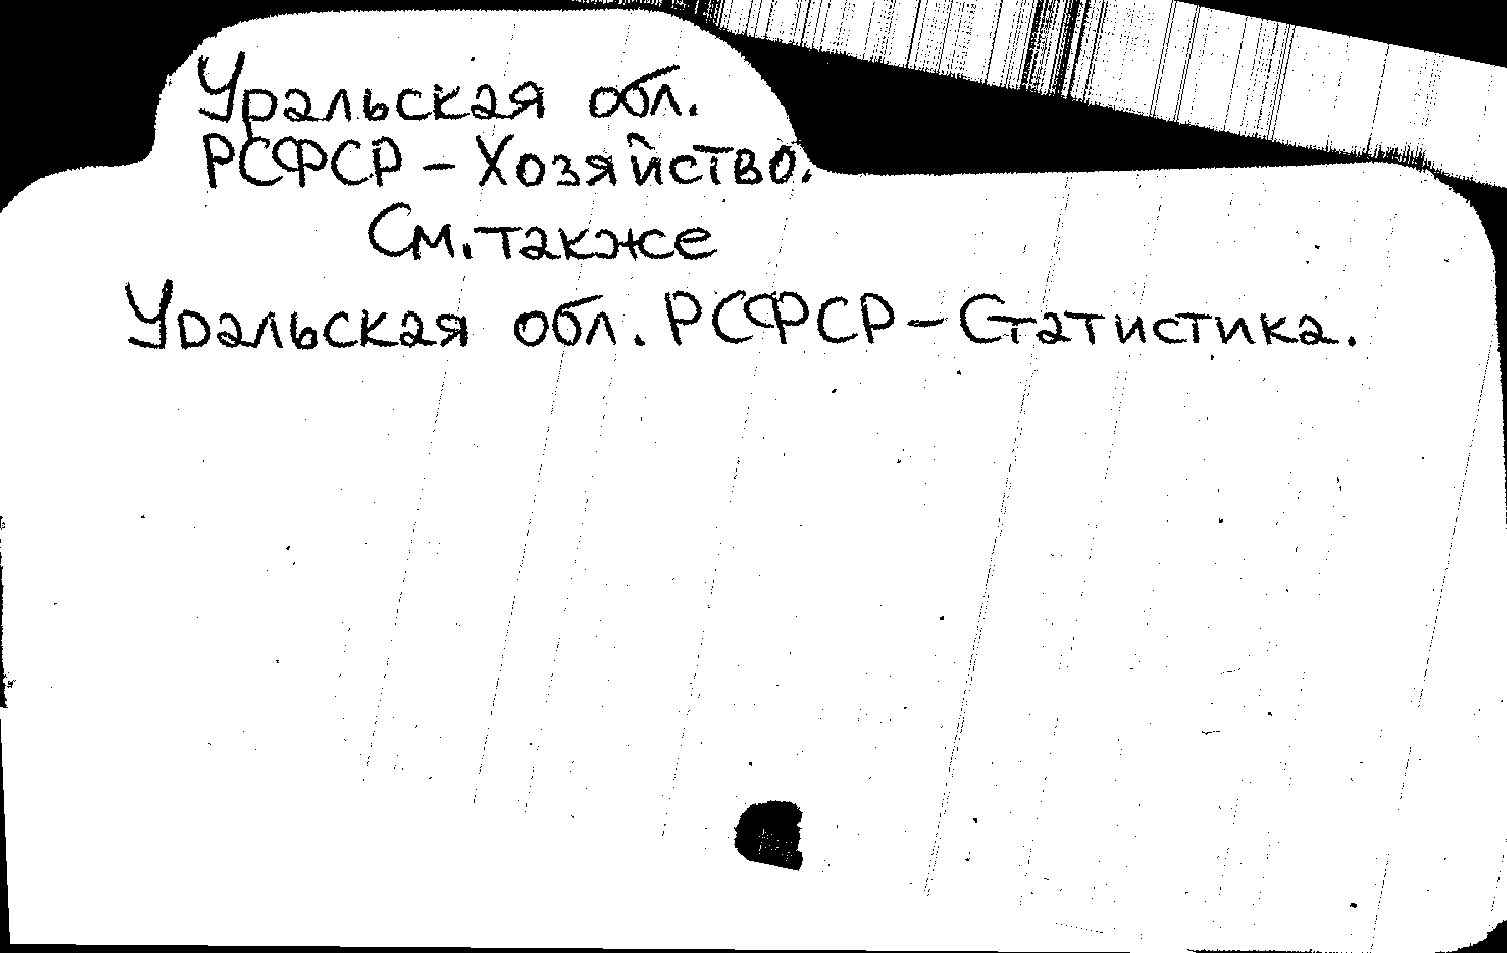 Уральская обл.
РСФСР – Хозяйство.
См. также
Уральская обл. РСФСР – Статистика.